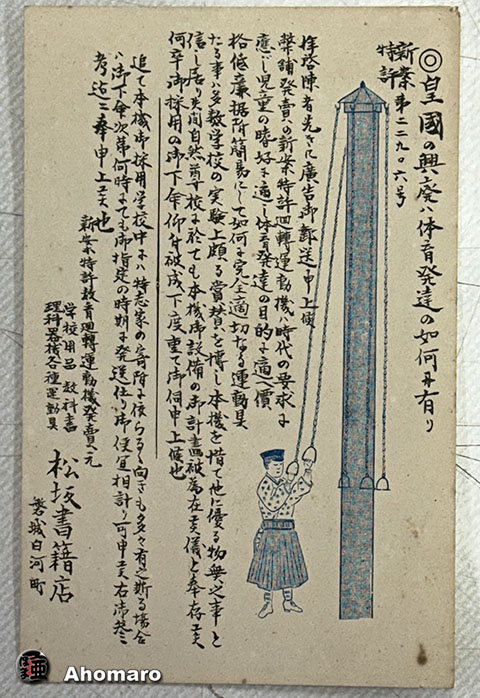 ◎皇國の興廢ハ体育発達の如何に有り
新案特許 第二二九〇六号
拝啓陳者先きに廣告御郵送申上候
弊舗発賣の新案特許廻轉運動機ハ時代の要求に
應じ児童の嗜好に適し体育発達の目的に適へ價
格低廉据附簡易にして如何にも完全適切なる運動具
たる事ハ多数学校の実験上頗る賞賛を博し本機を惜て他に優る物無之事と
信じ居り候間自然貴校に於ても本機御設備の御計畫被為在候儀と奉存候
何卒御採用の御下命仰付被成下度重て御伺申上候也
追て本機御採用学校中にハ特志家の寄附に依らるゝ向きも多々有之斯る場合
ハ御下命次第何時にても御指定の時期に発送仕り御便宜相計り可申候右御参
考迄に奉申上候也
新案特許教育廻轉運動機発賣元
学校用品 教科書
理科器械各種運動具
松坂書籍店
磐城白河町
Ahomaro